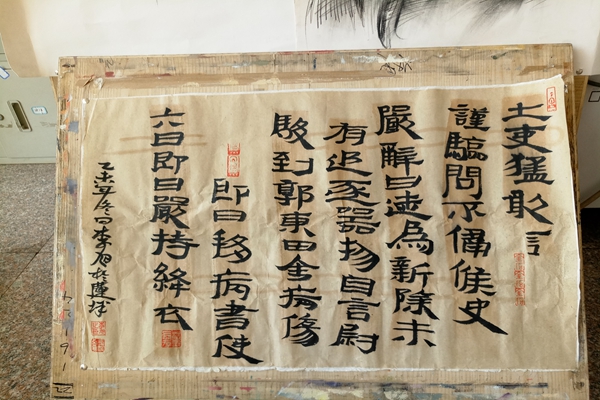 士吏猛敢言
謹驗問不候史
嚴辭曰為新除未
有追逐器物自言尉
駿到郭東田舍病傷
即日移病書使
六日即日嚴持絳衣
乙未年冬日李旭於蓮